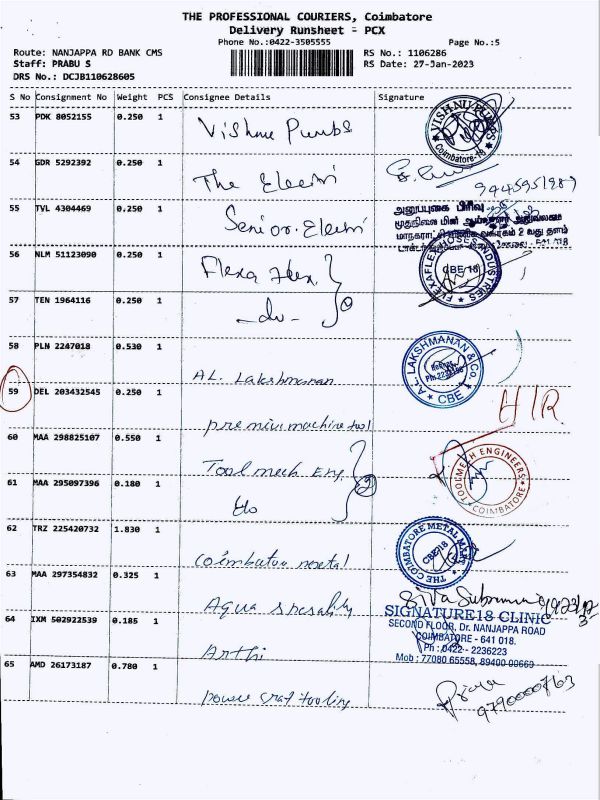 THE PROFESSIONAL COURIERS, Coimbatore
Delivery Runsheet - PCX
Phone No.:0422-3505555
Page No.:5
Route: NANJAPPA RD BANK CMS
RS No.: 1106286
Staff: PRABU S
RS Date: 27-Jan-2023
DRS No.: DCJB110628605
S No Consignment No Weight PCS Consignee Details Signature
53 PDK 8052155 0.250 1
Vishnu Pumbs
VISHNU PUMPS
Coimbatore-18
54 GDR 5292392 0.250 1
The Electri
9445951989
55 TVL 4304469 0.250 1
Senior. Electri
அனுப்புகை பிரிவு
56 NLM 51123090 0.250 1
Flexa flex.
FLEXAFLEX HOSES INDUSTRIES
CBE 18
57 TEN 1964116 0.250 1
-do-
2
58 PLN 2247018 0.530 1
AL. Lakshmanan
A.L. LAKSHMANAN & Co.
CBE
59 DEL 203432545 0.250 1
premium machine tool
H/R.
60 MAA 298825107 0.550 1
Tool mech. Eng
TOOLMECH ENGINEERS
COIMBATORE
61 MAA 295097396 0.180 1
do
2
62 TRZ 225420732 1.830 1
Coimbatore metal
THE COIMBATORE METAL MART
CBE-18
63 MAA 297354832 0.325 1
Aqua
64 IXM 502922539 0.185 1
Arthi
SIGNATURE18 CLINIC
SECOND FLOOR, Dr. NANJAPPA ROAD
COIMBATORE - 641 018.
Ph : 0422 - 2236223
Mob : 77080 65558, 89400 00669
65 AMD 26173187 0.780 1
power craf tooling
Priya
9790000763